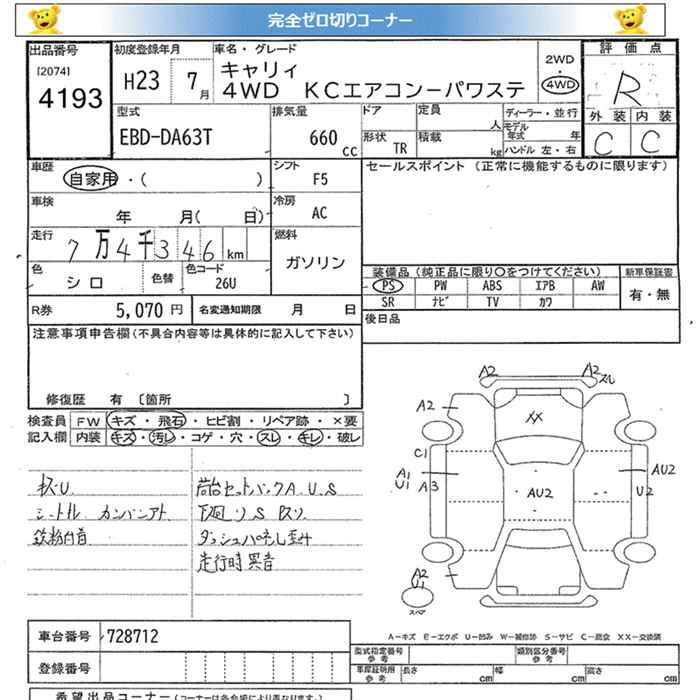 完全ゼロ切りコーナー
出品番号 初度登録年月 車名・グレード 評価点
[2074] 4193
H23 7月
キャリィ
4WD KCエアコンーパワステ
2WD
4WD
R
外装 内装
C C
型式 排気量 ドア 定員 人 ディーラー・並行
EBD-DA63T 660cc
形状 TR 積載 kg
モデル年式 年
ハンドル 左・右
車歴 シフト セールスポイント (正常に機能するものに限ります)
自家用・( ) F5
車検 冷房
年 月( 日) AC
走行 燃料
7万4千346km ガソリン
色 色替 色コード
シロ 26U
装備品(純正品に限り○をつけてください) 新車保証書
PS PW ABS エアB AW 有・無
SR ナビ TV カワ
R券 5,070円 名変通知期限 月 日
後日品
注意事項申告欄(不具合内容等は具体的に記入して下さい)
修復歴 有 [箇所 ]
検査員 FW キズ・飛石・ヒビ割・リペア跡・×要
記入欄 内装 キズ・汚レ・コゲ・穴・スレ・キレ・破レ
キズU 荷台セットバックA.U.S
シートル カンバンアト 下廻リS Rソ
鉄粉付着
走行時異音
A2 A2 スレ
A2
XX
C1
A1 U1 A3
AU2
AU2
U2
A2 U1
スペア
車台番号 728712
登録番号
A-キズ E-エクボ U-凹み W-補修跡 S-サビ C-腐食 XX-交換済
型式指定番号 参考 類別区分番号 参考
車庫証明用 参考 長さ cm 幅 cm 高さ cm
希望出品コーナー(コーナーは各会場により異なります)